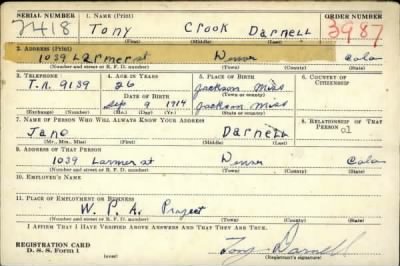 SERIAL NUMBER 1. NAME (Print) ORDER NUMBER
2418 Tony Crook Darnell 3987
(First) (Middle) (Last)
2. ADDRESS (Print)
1039 Larmer st Denver Colo
(Number and street or R. F. D. number) (Town) (County) (State)
3. TELEPHONE 4. AGE IN YEARS 5. PLACE OF BIRTH 6. COUNTRY OF CITIZENSHIP
T.A. 9139 26 Jackson Miss
DATE OF BIRTH (Town or county)
Sep 9 1914 Jackson Miss
(Exchange) (Number) (Mo.) (Day) (Yr.) (State or country)
7. NAME OF PERSON WHO WILL ALWAYS KNOW YOUR ADDRESS 8. RELATIONSHIP OF THAT PERSON
Jane Darnell
(Mr., Mrs., Miss) (First) (Middle) (Last)
9. ADDRESS OF THAT PERSON
1039 Larmer st Denver Colo
(Number and street or R. F. D. number) (Town) (County) (State)
10. EMPLOYER'S NAME
11. PLACE OF EMPLOYMENT OR BUSINESS
W. P. A. Project
(Number and street or R. F. D. number) (Town) (County) (State)
I AFFIRM THAT I HAVE VERIFIED ABOVE ANSWERS AND THAT THEY ARE TRUE.
REGISTRATION CARD
D. S. S. Form 1 (over) Tony Darnell
(Registrant's signature)